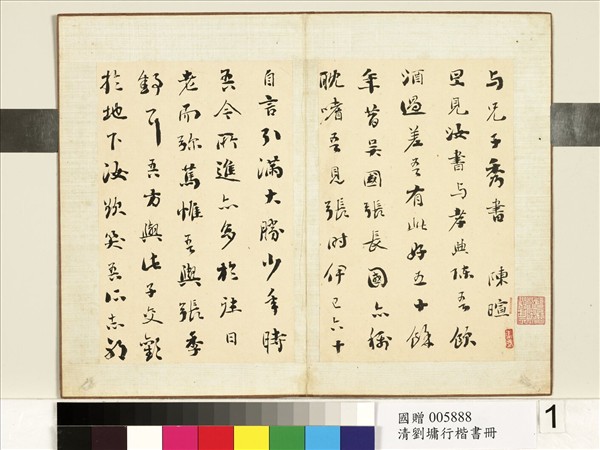 与兄子秀書 陳暄
旦見汝書与孝典陳吾飲
酒過差吾有此好五十餘
年昔吳國張長國亦稱
耽嗜吾見張時伊已六十
自言引滿大勝少年時
吾今所進亦多於往日
老而弥篤惟吾與張季
舒耳吾方與此子交歡
於地下汝欲吾所志邪
國贈 005888
清劉墉行楷書冊
1